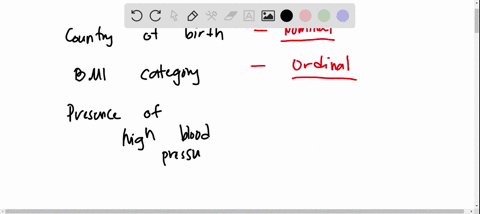 Country of birth — Nominal
BMI category — Ordinal
Presence of
high blood
pressu